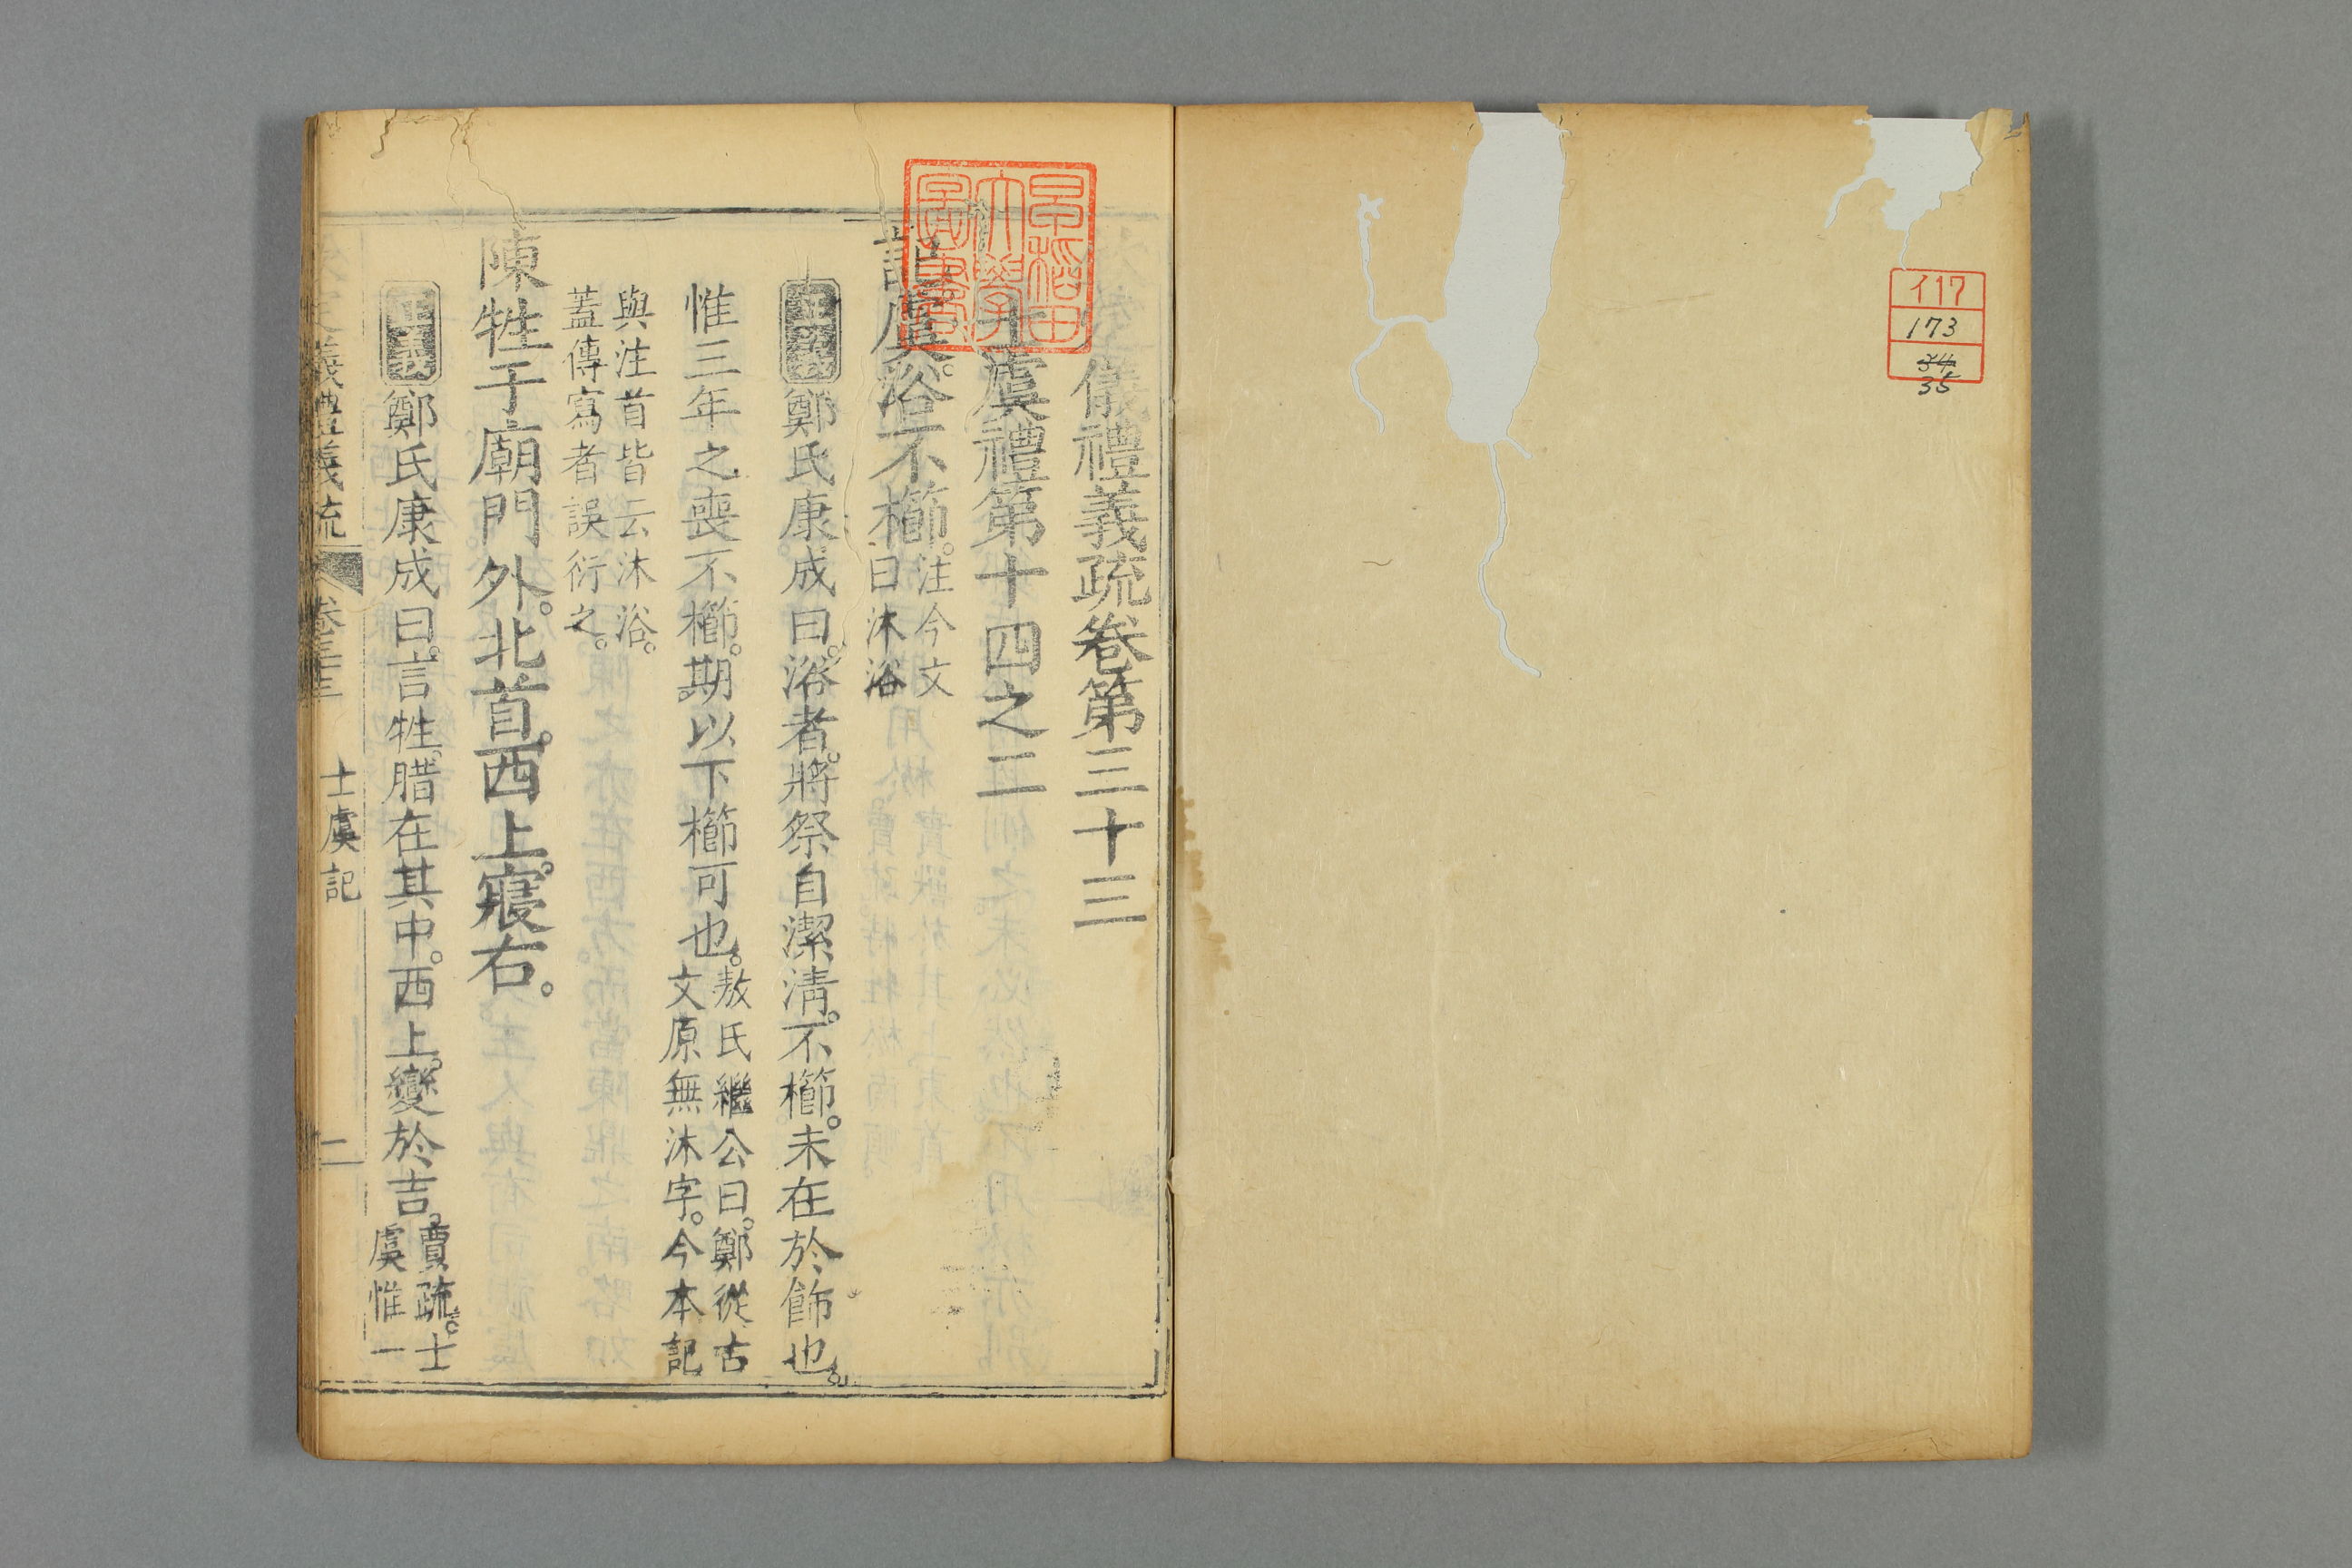 イ17
173
34
35
早稲田
大學
圖書
儀禮義疏卷第三十三
士虞禮第十四之二
記虞。浴。不櫛。注今文
曰沐浴
正義鄭氏康成曰。浴者。將祭自潔淸。不櫛。未在於飾也。
惟三年之喪不櫛。期以下櫛可也。敖氏繼公曰。鄭從古
文原無沐字。今本記
與注首皆云沐浴。
蓋傳寫者誤衍之。
陳牲于廟門外。北首。西上。寢右。
正義鄭氏康成曰。言牲。腊在其中。西上。變於吉。賈疏。士
虞惟一
義禮義疏 卷三十三 士虞記 一